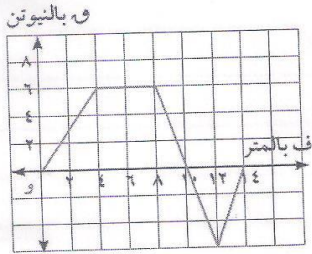 ق بالنيوتن
٨
٦
٤
٢
ف بالمتر
و ٢ ٤ ٦ ٨ ١٠ ١٢ ١٤